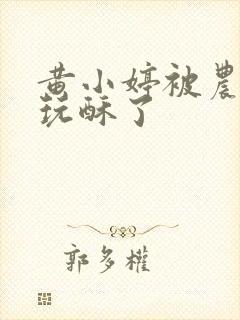 黄小婷被農
玩酥了
郭多權